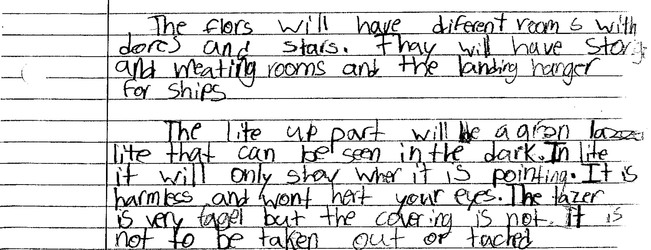 The flors will have diferent rooms with
dores and stars. Thay will have storig
and meating rooms and the landing hanger
for ships
The lite up part will be a gren lazer
lite that can be seen in the dark. In lite
it will only show wher it is pointing. It is
harmless and wont hert your eyes. The lazer
is very fagel but the covering is not. It is
not to be taken out or tached